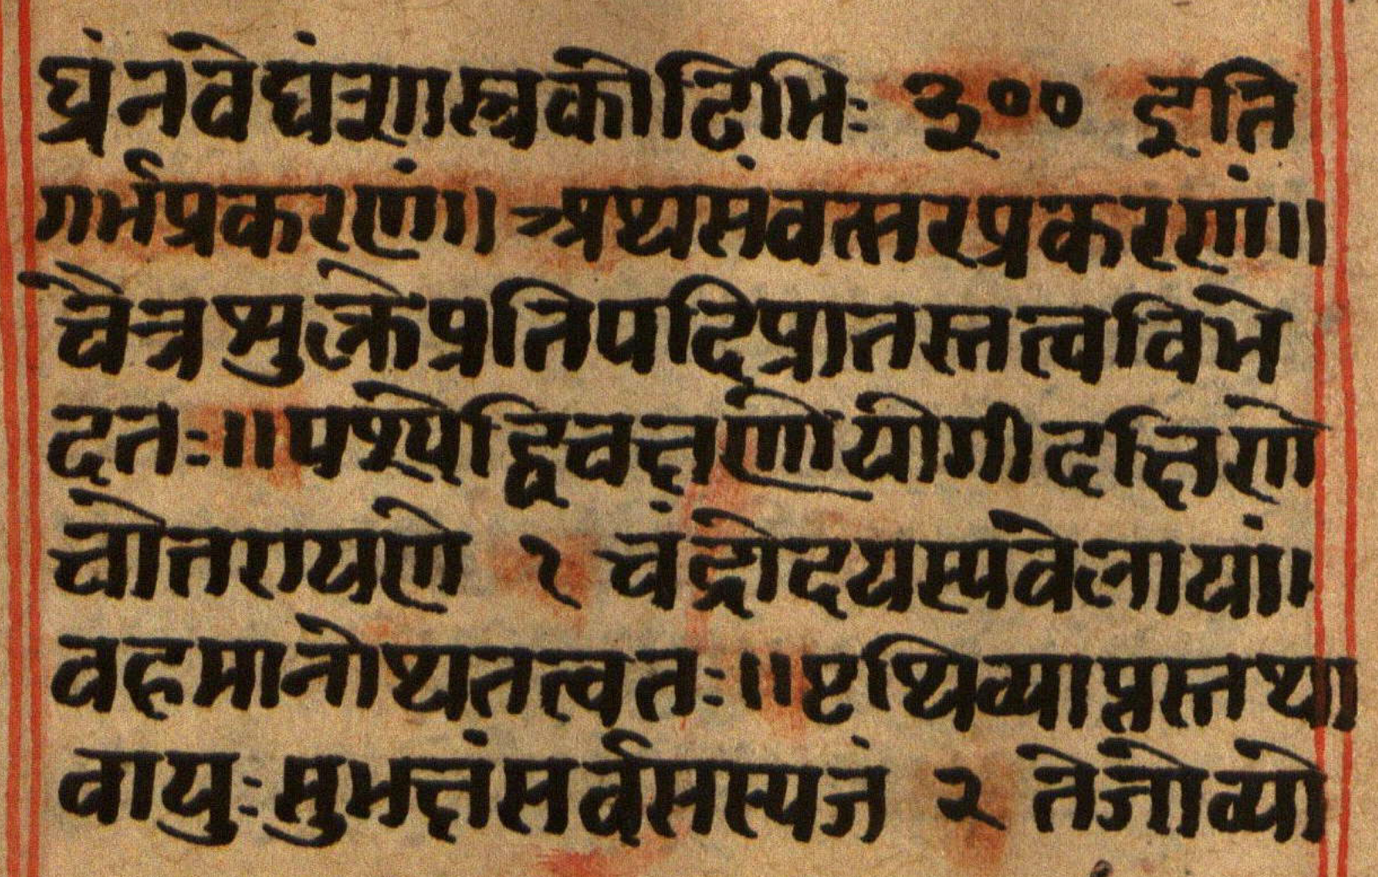 घ्रंनवेद्यंत्रशास्त्रकोटिभिः ३०० इति
गर्भप्रकरणं॥ अथसंवत्सरप्रकरणं॥
चैत्रशुक्लेप्रतिपदिप्रातस्तत्वविभे
दतः॥पश्येद्विचक्षणोयोगीदक्षिणे
चोत्तरायणे १ चंद्रोदयस्यवेलायां।
वहमानोथतत्वतः॥पृथिव्यापस्तथा
वायुःसुभक्षंसर्वसस्यजं २ तेजोव्यो